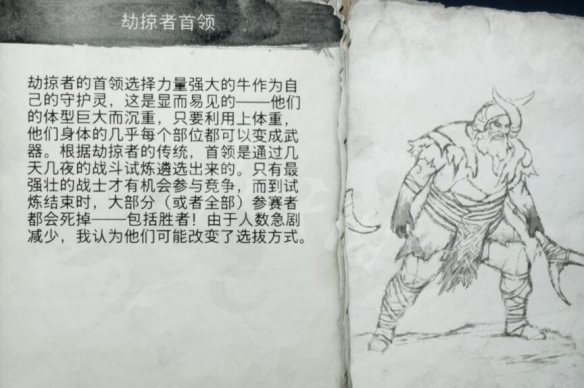 劫掠者首领
劫掠者的首领选择力量强大的牛作为自
己的守护灵，这是显而易见的——他们
的体型巨大而沉重，只要利用上体重，
他们身体的几乎每个部位都可以变成武
器。根据劫掠者的传统，首领是通过几
天几夜的战斗试炼遴选出来的。只有最
强壮的战士才有机会参与竞争，而到试
炼结束时，大部分（或者全部）参赛者
都会死掉——包括胜者！由于人数急剧
减少，我认为他们可能改变了选拔方式。